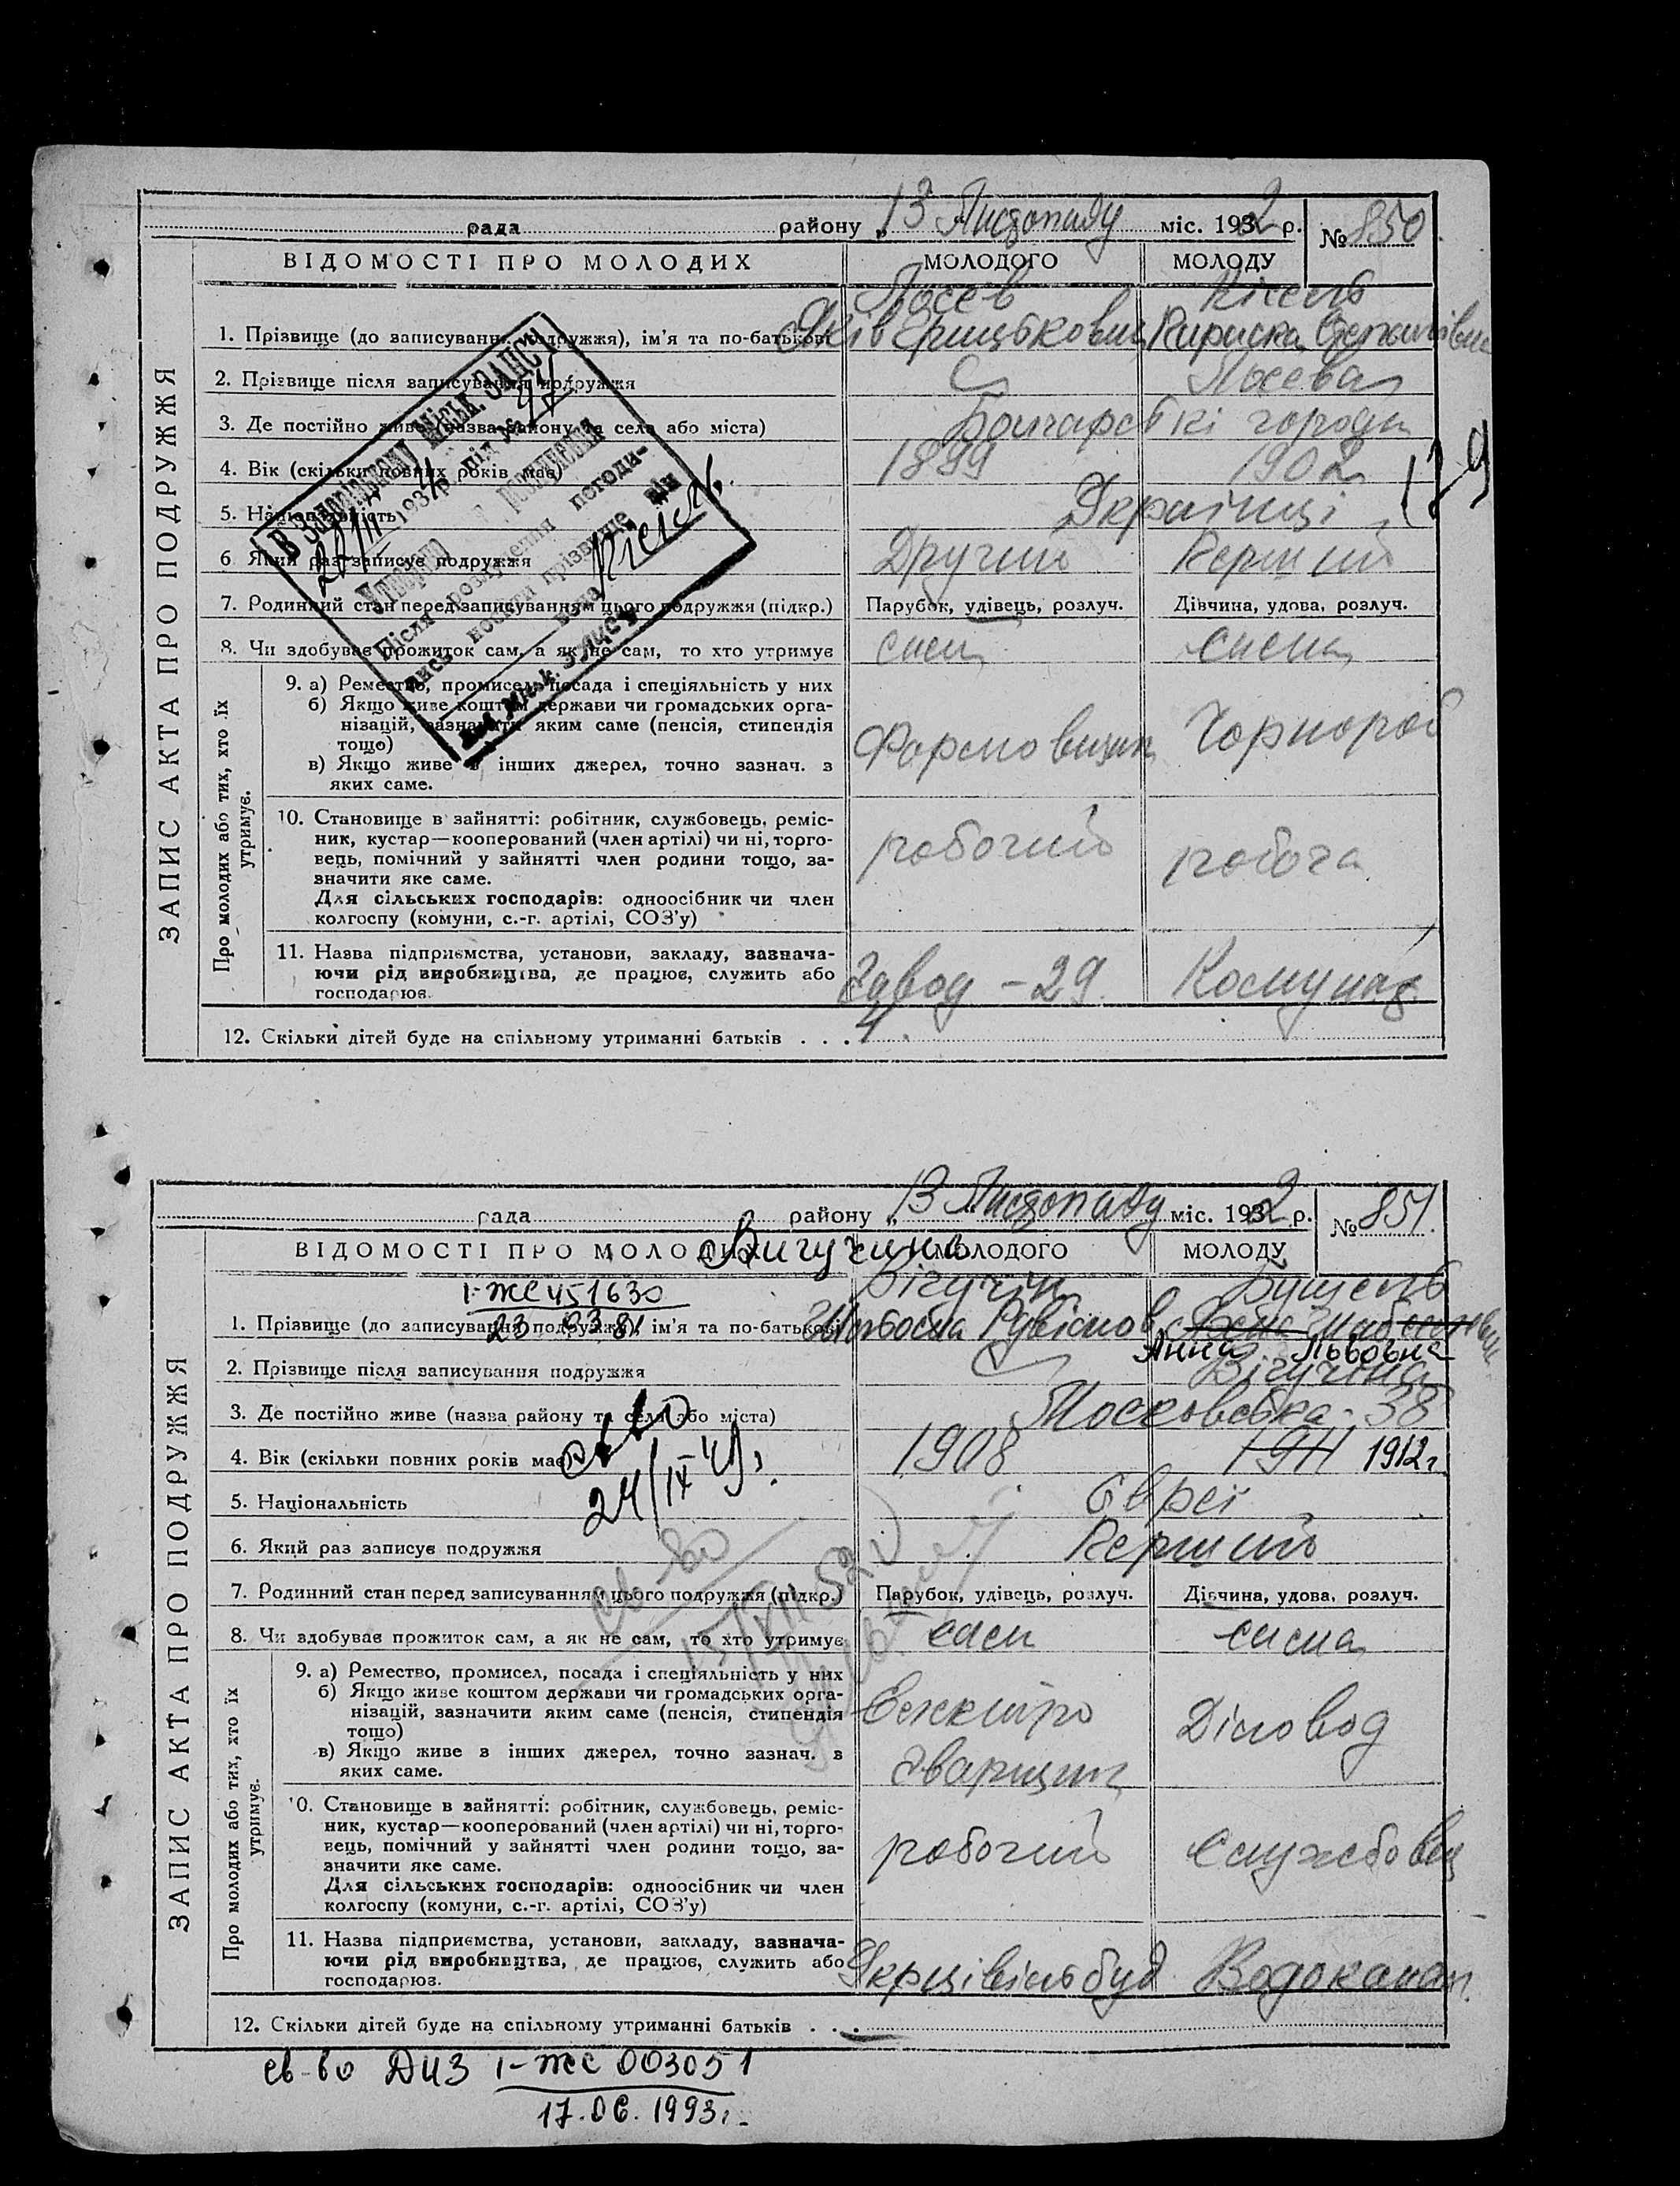 рада району „13“ Листопаду міс. 1932 р. № 850.
ВІДОМОСТІ ПРО МОЛОДИХ МОЛОДОГО МОЛОДУ
ЗАПИС АКТА ПРО ПОДРУЖЖЯ
Лосєв Кісель
1. Прізвище (до записування подружжя), ім'я та по-батькові Яків
2. Прізвище після записування подружжя Лосева
3. Де постійно живе (назва району та села або міста) Болгарські городи
4. Вік (скільки повних років має) 1899 1902
5. Національність Українці
6. Який раз записує подружжя Другий Перший
7. Родинний стан перед записуванням цього подружжя (підкр.) Парубок, удівець, розлуч. Дівчина, удова, розлуч.
8. Чи здобуває прожиток сам, а як не сам, то хто утримує сам сама
Про молодих або тих, хто їх утримує.
9. а) Ремество, промисел, посада і спеціяльність у них
б) Якщо живе коштом держави чи громадських орга-
нізацій, зазначити яким саме (пенсія, стипендія
тощо)
в) Якщо живе з інших джерел, точно зазнач. з
яких саме.
Формовщик Чорнороб
10. Становище в зайнятті: робітник, службовець, реміс-
ник, кустар—кооперований (член артілі) чи ні, торго-
вець, помічний у зайнятті член родини тощо, за-
значити яке саме.
Для сільських господарів: одноосібник чи член
колгоспу (комуни, с.-г. артілі, СОЗ'у)
робочий робоча
11. Назва підприємства, установи, закладу, зазнача-
ючи рід виробництва, де працює, служить або
господарює.
Завод - 29
12. Скільки дітей буде на спільному утриманні батьків . . . 4.
В Запорізькому міськ. ЗАГСУ
193 р. під №
Утворено розлучення
Після розлучення погоди-
лись носити прізвище він
вона Кісель
129
рада району „13“ Листопаду міс. 1932 р. № 851.
ВІДОМОСТІ ПРО МОЛОДИХ МОЛОДОГО МОЛОДУ
Вигучин
ЗАПИС АКТА ПРО ПОДРУЖЖЯ
I-ЖС 451630
23 03 81
Вігучін Бушель
1. Прізвище (до записування подружжя), ім'я та по-батькові
Анна Львовна
2. Прізвище після записування подружжя Вігучіна
3. Де постійно живе (назва району та села або міста) Московська - 38
4. Вік (скільки повних років має) 1908 1911 1912 г.
24/IX-49 г.
5. Національність Євреї
6. Який раз записує подружжя Перший
св-во
7. Родинний стан перед записуванням цього подружжя (підкр.) Парубок, удівець, розлуч. Дівчина, удова, розлуч.
8. Чи здобуває прожиток сам, а як не сам, то хто утримує сам сама
Про молодих або тих, хто їх утримує.
9. а) Ремество, промисел, посада і спеціяльність у них
б) Якщо живе коштом держави чи громадських орга-
нізацій, зазначити яким саме (пенсія, стипендія
тощо)
в) Якщо живе з інших джерел, точно зазнач. з
яких саме.
зварщик Діловод
10. Становище в зайнятті: робітник, службовець, реміс-
ник, кустар—кооперований (член артілі) чи ні, торго-
вець, помічний у зайнятті член родини тощо, за-
значити яке саме.
Для сільських господарів: одноосібник чи член
колгоспу (комуни, с.-г. артілі, СОЗ'у)
робочий службовец
11. Назва підприємства, установи, закладу, зазнача-
ючи рід виробництва, де працює, служить або
господарює.
Укрцівільбуд Водоканал.
12. Скільки дітей буде на спільному утриманні батьків . . . —
св-во ДИЗ I-ЖС 003051
17.06.1993 г.